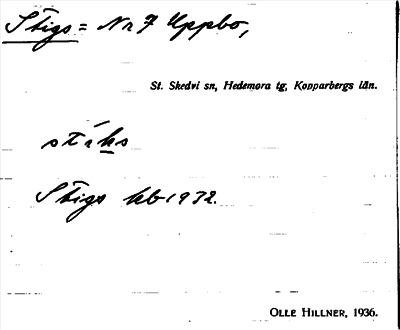 Stigs = Nr 7 Uppbo,
St. Skedvi sn, Hedemora tg, Kopparbergs län.
Stigs kb 1932.
OLLE HILLNER, 1936.